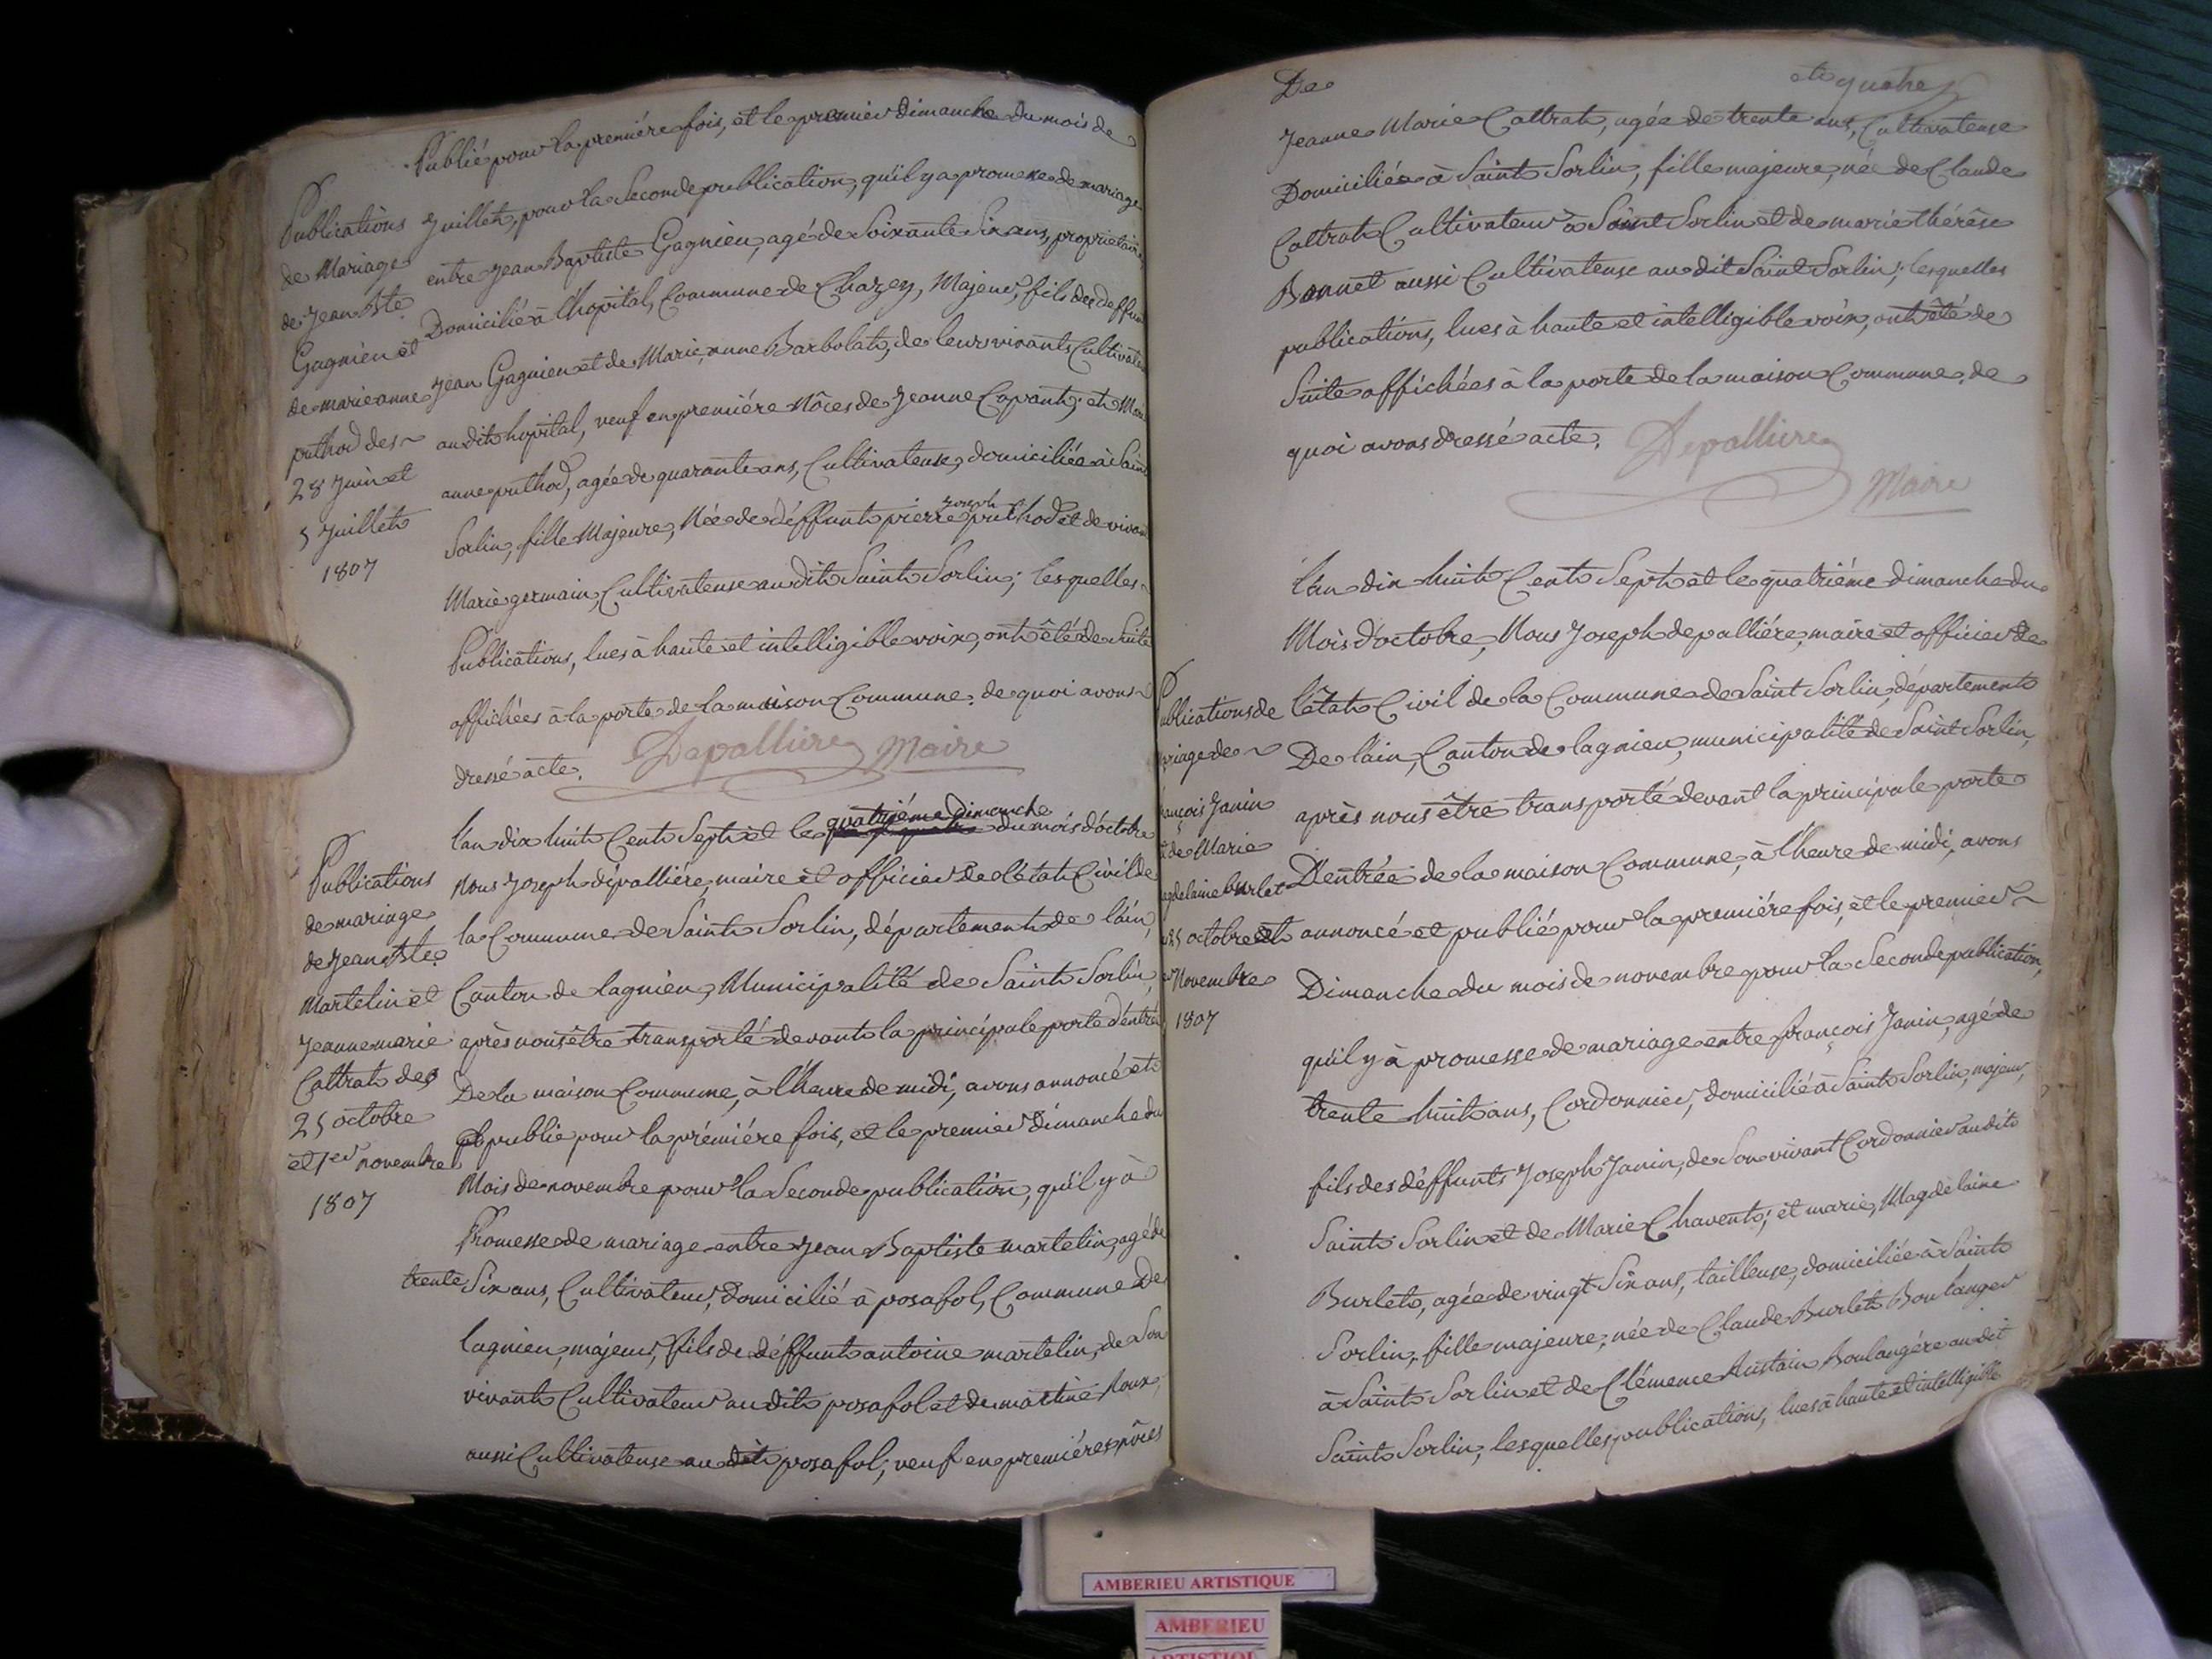 Publié pour la première fois, et le premier dimanche du mois de
Publications
de Mariage
de Jean Bte
Gagnien et
de marie anne
puthod des
28 Juin et
5 Juillet
1807
Juillet, pour la Seconde publication, qu'il y a promesse de mariage
entre Jean Baptiste Gagnien, agé de Soixante Six ans, propriétaire,
Domicilié à l'hopital, Commune de Chazey, Majeur, fils de deffunt
Jean Gagnien et de Marie anne Barbolat, de leurs vivants Cultivat
au dit hopital, veuf en première Nôces de Jeanne Capant; et Mari
anne puthod, agée de quarante ans, Cultivateuse, domiciliée à Saint
Joseph
Sorlin, fille Majeure, Née de déffunt pierre puthod et de vivan
Marie germain, Cultivateuse au dit Saint Sorlin; les quelles
Publications, lues à haute et intelligible voix, ont êté de Suite
affichées à la porte de la maison Commune. de quoi avons
dressé acte.
Depallière Maire
Publications
de mariage
de Jean Bte
Martelin et
Jeanne marie
Cattrat des
25 octobre
et 1er novembre
1807
quatriéme Dimanche
l'an dix huit Cent Sept et le du mois d'octobre
Nous Joseph depallière, maire et officier de l'état Civil de
la Commune de Saint Sorlin, département de l'ain,
Canton de lagnieu, Municipalité de Saint Sorlin,
après nous être transporté devant la principale porte d'entrée
De la maison Commune, à l'heure de midi, avons annoncé et
publié pour la première fois, et le premier dimanche du
Mois de novembre pour la Seconde publication, qu'il y a
Promesse de mariage entre Jean Baptiste martelin, agé de
trente Six ans, Cultivateur, Domicilié à posafol, Commune De
lagnieu, majeur, fils de déffunt antoine martelin, de Son
vivant Cultivateur au dit posafol et de martine Roux,
aussi Cultivateuse au dit posafol; veuf en premières nôces
De
et quatre
Jeanne Marie Cattrat, agée de trente ans, Cultivateuse
Domiciliée à Saint Sorlin, fille majeure, née de Claude
Cattrat Cultivateur à Saint Sorlin et de marie thérèse
Bonnet aussi Cultivateuse au dit Saint Sorlin; lesquelles
publications, lues à haute et intelligible voix, ont êté de
Suite affichées à la porte de la maison Commune, de
quoi avons dressé acte.
Depallière
Maire
ublications de
riage de
rançois Janin
t de Marie
agdelaine burlet
25 octobre et
Novembre
1807
l'an dix huit Cent Sept et le quatriéme dimanche du
Mois d'octobre, Nous Joseph depallière, maire et officier de
l'état Civil de la Commune de Saint Sorlin, département
De l'ain, Canton de lagnieu, municipalité de Saint Sorlin,
après nous être transporté devant la principale porte
D'entrée de la maison Commune, à l'heure de midi, avons
annoncé et publié pour la première fois, et le premier
Dimanche du mois de novembre pour la Seconde publication,
qu'il y à promesse de mariage entre françois Janin, agé de
trente huit ans, Cordonnier, domicilié à Saint Sorlin, majeur,
fils des déffunts Joseph Janin, de Son vivant Cordonnier au dit
Saint Sorlin et de Marie Chavent; et marie Magdelaine
Burlet, agée de vingt Six ans, tailleuse, domiciliée à Saint
Sorlin, fille majeure, née de Claude Burlet Boulanger
à Saint Sorlin et de Clémence Austain Boulangére au dit
Saint Sorlin, lesquelles publications, lues à haute et intelligible
AMBERIEU ARTISTIQUE
AMBERIEU
ARTISTIQU